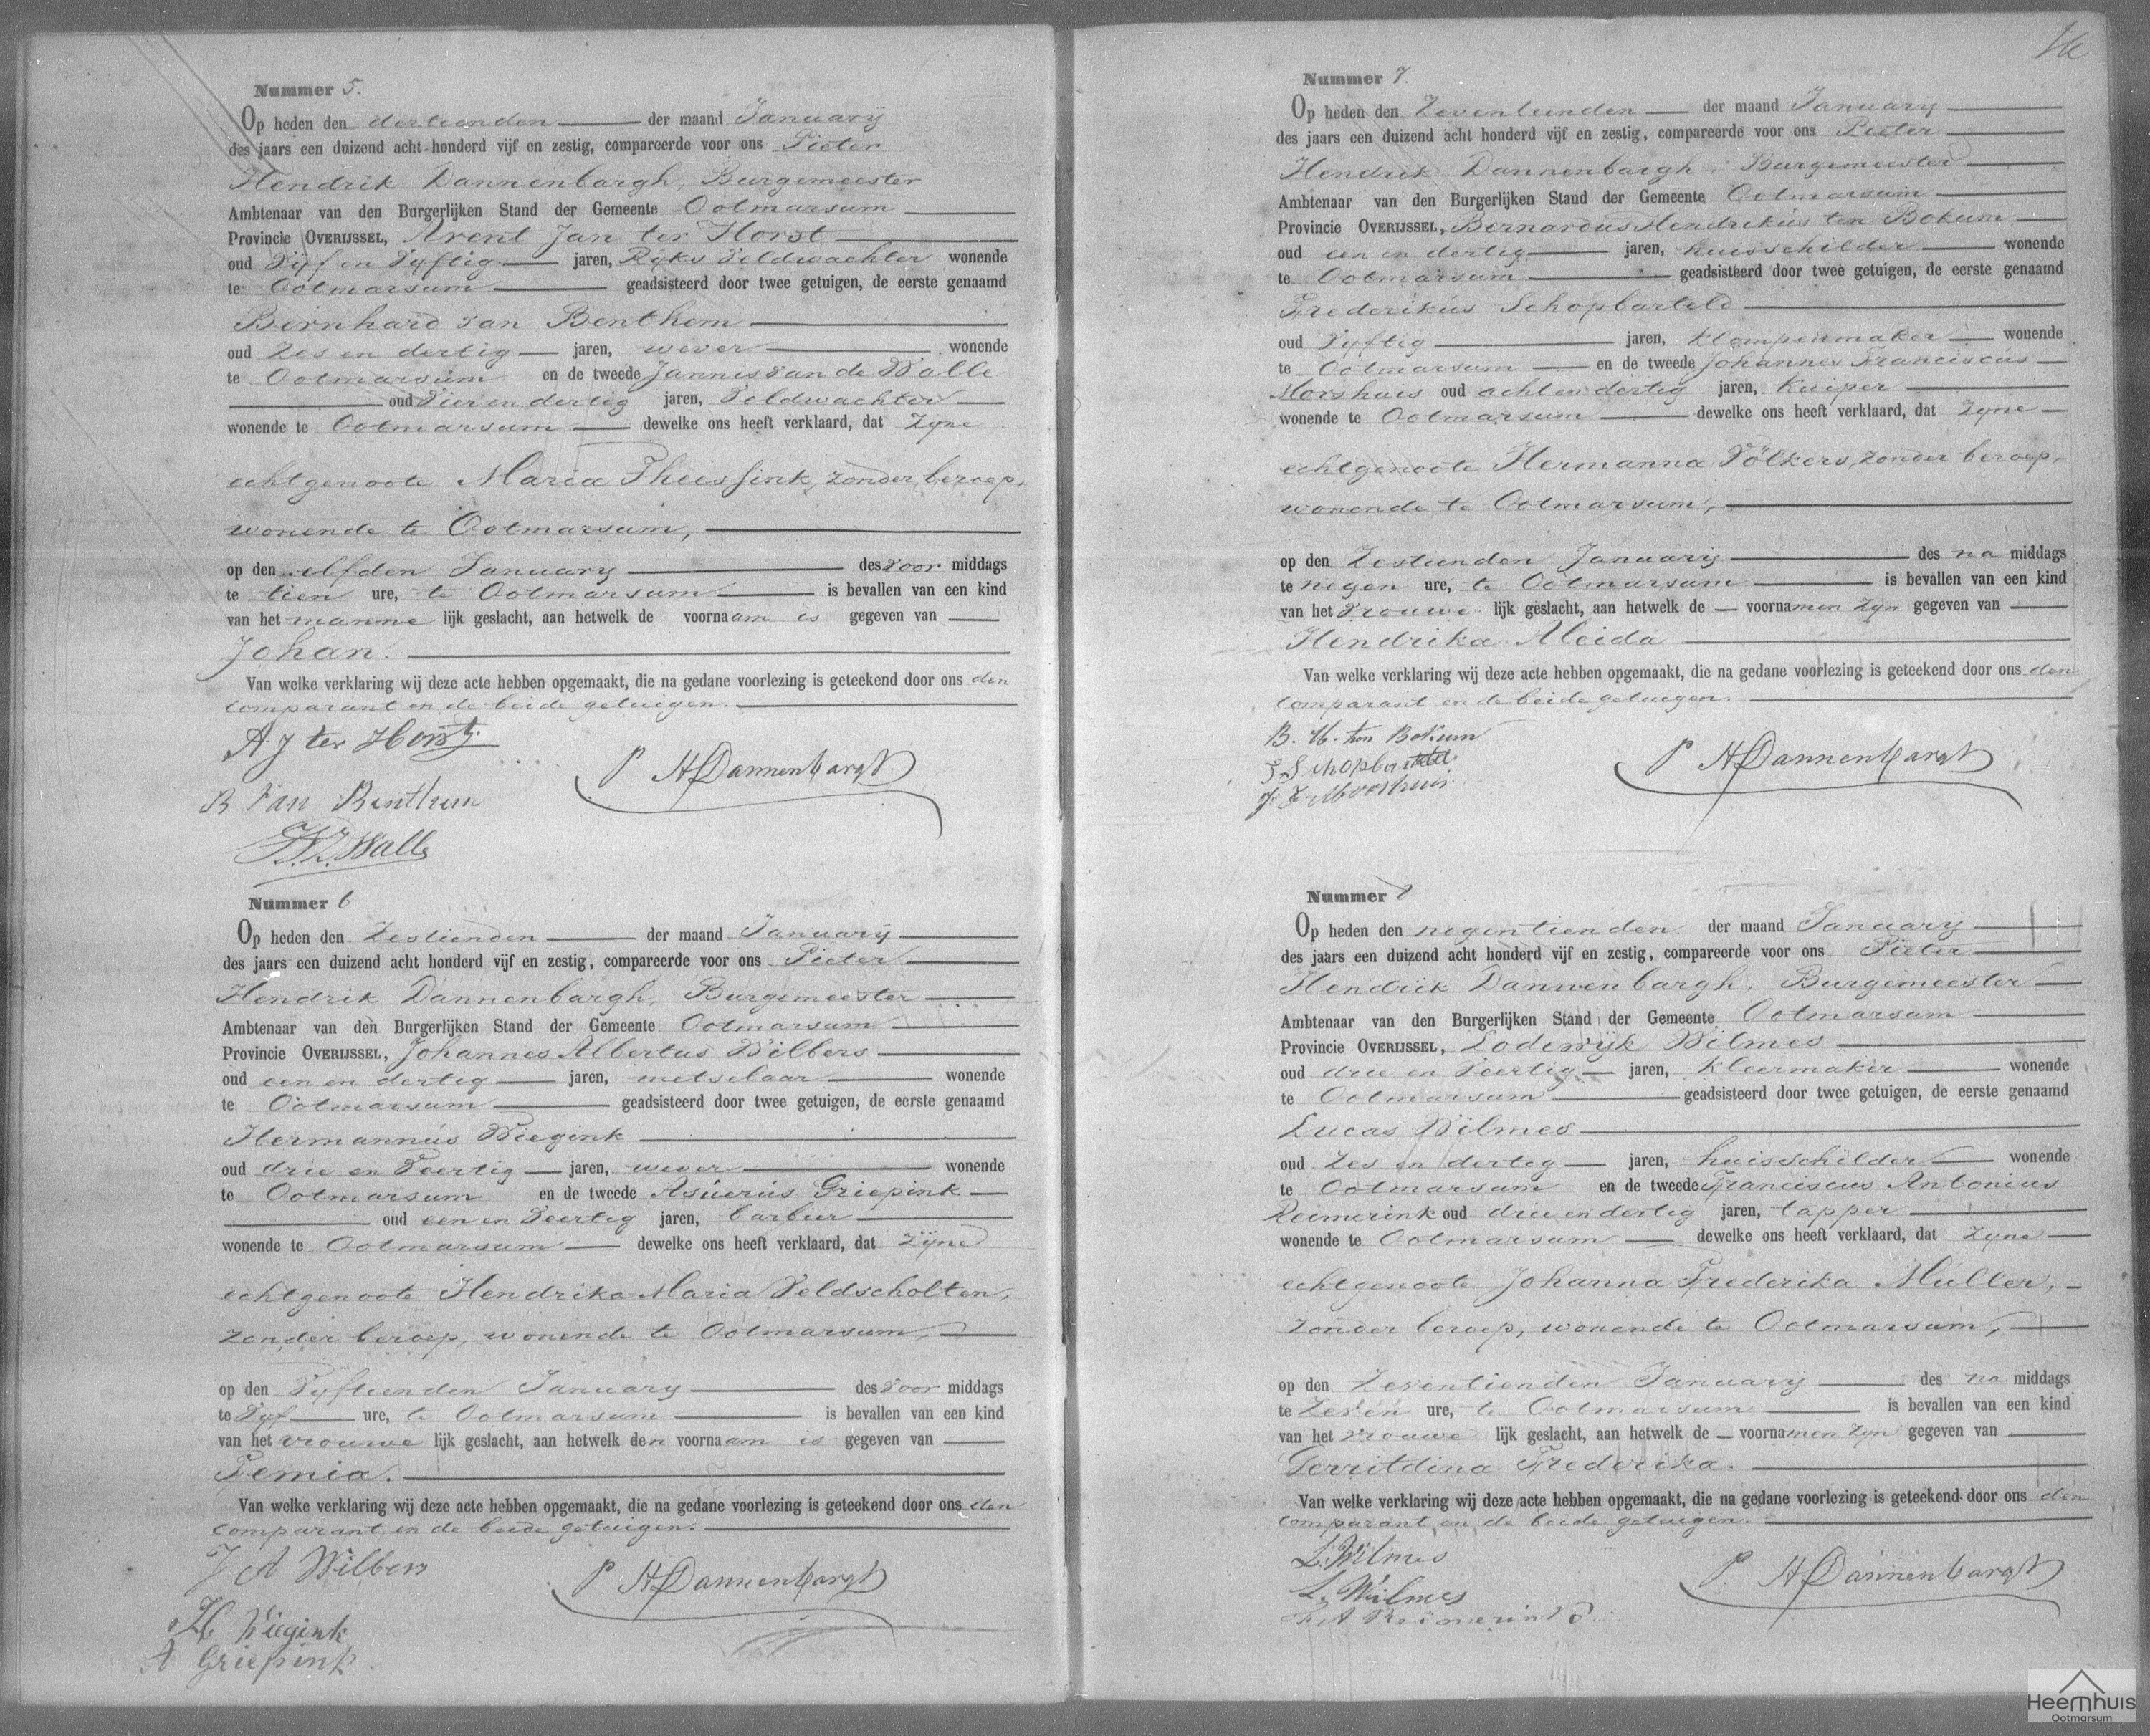 Nummer 5.
Op heden den dertienden der maand January
des jaars een duizend acht honderd vijf en zestig, compareerde voor ons Pieter
Hendrik Dannenbargh, Burgemeester
Ambtenaar van den Burgerlijken Stand der Gemeente Ootmarsum
Provincie OVERIJSSEL, Arent Jan ter Horst
oud Vyf en Vyftig jaren, Ryks Veldwachter wonende
te Ootmarsum geadsisteerd door twee getuigen, de eerste genaamd
Bernhard van Benthem
oud Zes en dertig jaren, wever wonende
te Ootmarsum en de tweede Jannis van de Walle
oud Vier en dertig jaren, Veldwachter
wonende te Ootmarsum dewelke ons heeft verklaard, dat Zyne
echtgenoote Maria Theussink, zonder beroep,
wonende te Ootmarsum,
op den elfden January des voor middags
te tien ure, te Ootmarsum is bevallen van een kind
van het manne lijk geslacht, aan hetwelk de voornaam is gegeven van
Johan.
Van welke verklaring wij deze acte hebben opgemaakt, die na gedane voorlezing is geteekend door ons den
comparant en de beide getuigen.
A J ter Horst
P H Dannenbargh
B van Benthem
Walle
Nummer 6
Op heden den Zestienden der maand January
des jaars een duizend acht honderd vijf en zestig, compareerde voor ons Pieter
Hendrik Dannenbargh, Burgemeester
Ambtenaar van den Burgerlijken Stand der Gemeente Ootmarsum
Provincie OVERIJSSEL, Johannes Albertus Wilbers
oud een en dertig jaren, metselaar wonende
te Ootmarsum geadsisteerd door twee getuigen, de eerste genaamd
Hermannus Wiegink
oud drie en Veertig jaren, wever wonende
te Ootmarsum en de tweede Asúerús Griepink
oud een en Veertig jaren, barbier
wonende te Ootmarsum dewelke ons heeft verklaard, dat Zyne
echtgenoote Hendrika Maria Veldscholten,
zonder beroep, wonende te Ootmarsum,
op den Vyftienden January des voor middags
te Vyf ure, te Ootmarsum is bevallen van een kind
van het vrouwe lijk geslacht, aan hetwelk den voornaam is gegeven van
Femia.
Van welke verklaring wij deze acte hebben opgemaakt, die na gedane voorlezing is geteekend door ons den
comparant en de beide getuigen.
J A Wilbers
P H Dannenbargh
H Wiegink
A Griepink
Nummer 7.
Op heden den Zeventienden der maand January
des jaars een duizend acht honderd vijf en zestig, compareerde voor ons Pieter
Hendrik Dannenbargh, Burgemeester
Ambtenaar van den Burgerlijken Stand der Gemeente Ootmarsum
Provincie OVERIJSSEL, Bernardus Hendrikus ten Bokum
oud een en dertig jaren, huisschilder wonende
te Ootmarsum geadsisteerd door twee getuigen, de eerste genaamd
Frederikus Schopbarteld
oud Vyftig jaren, klompenmaker wonende
te Ootmarsum en de tweede Johannes Franciscus
Morshuis oud acht en dertig jaren, Kuiper
wonende te Ootmarsum dewelke ons heeft verklaard, dat Zyne
echtgenoote Hermanna Völkers, zonder beroep,
wonende te Ootmarsum,
op den Zestienden January des na middags
te negen ure, te Ootmarsum is bevallen van een kind
van het Vrouwe lijk geslacht, aan hetwelk de voornamen Zyn gegeven van
Hendrika Aleida
Van welke verklaring wij deze acte hebben opgemaakt, die na gedane voorlezing is geteekend door ons den
comparant en de beide getuigen.
B. H. ten Bokum
P H Dannenbargh
F Schopbarteld
J F Morshuis
Nummer 8
Op heden den negentienden der maand January
des jaars een duizend acht honderd vijf en zestig, compareerde voor ons Pieter
Hendrik Dannenbargh, Burgemeester
Ambtenaar van den Burgerlijken Stand der Gemeente Ootmarsum
Provincie OVERIJSSEL, Lodewyk Wilmes
oud drie en Veertig jaren, Kleermaker wonende
te Ootmarsum geadsisteerd door twee getuigen, de eerste genaamd
Lucas Wilmes
oud Zes en dertig jaren, huisschilder wonende
te Ootmarsum en de tweede Franciscus Antonius
Reimerink oud drie en dertig jaren, tapper
wonende te Ootmarsum dewelke ons heeft verklaard, dat Zyne
echtgenoote Johanna Frederika Muller,
zonder beroep, wonende te Ootmarsum,
op den Zeventienden January des na middags
te Zeven ure, te Ootmarsum is bevallen van een kind
van het vrouwe lijk geslacht, aan hetwelk de voornamen Zyn gegeven van
Gerritdina Frederika.
Van welke verklaring wij deze acte hebben opgemaakt, die na gedane voorlezing is geteekend door ons den
comparant en de beide getuigen.
L. Wilmes
P. H Dannenbargh
L. Wilmes
F A Reimerink
Heemhuis
Ootmarsum